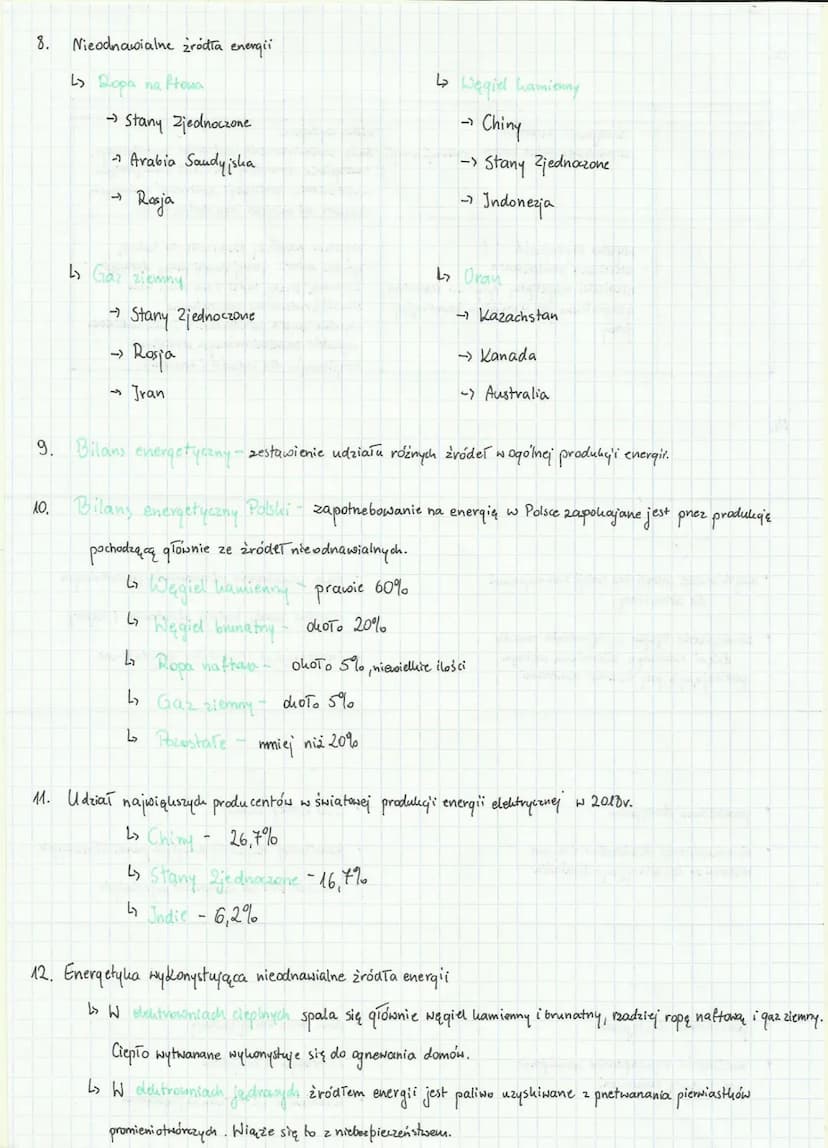 8. Nieodnawialne źródła energii
↳ Ropa naftowa
→ Stany Zjednoczone
→ Arabia Saudyjska
→ Rosja
↳ Węgiel kamienny
→ Chiny
→ Stany Zjednoczone
→ Indonezja
↳ Gaz ziemny
→ Stany Zjednoczone
→ Rosja
→ Iran
↳ Uran
→ Kazachstan
→ Kanada
→ Australia
9. Bilans energetyczny - zestawienie udziału różnych źródeł w ogólnej produkcji energii.
10. Bilans energetyczny Polski - zapotrzebowanie na energię w Polsce zapokajane jest przez produkcję
pochodzącą głównie ze źródeł nieodnawialnych.
↳ Węgiel kamienny - prawie 60%
↳ Węgiel brunatny - około 20%
↳ Ropa naftowa - około 5%, niewielkie ilości
↳ Gaz ziemny - około 5%
↳ Pozostałe - mniej niż 20%
11. Udział największych producentów w światowej produkcji energii elektrycznej w 2018r.
↳ Chiny - 26,7%
↳ Stany Zjednoczone - 16,7%
↳ Indie - 6,2%
12. Energetyka wykorzystująca nieodnawialne źródła energii
↳ W elektrowniach cieplnych spala się głównie węgiel kamienny i brunatny, rzadziej ropę naftową i gaz ziemny.
Ciepło wytwarzane wykorzystuje się do ogrzewania domów.
↳ W elektrowniach jądrowych źródłem energii jest paliwo uzyskiwane z przetwarzania pierwiastków
promieniotwórczych. Wiąże się to z niebezpieczeństwem.